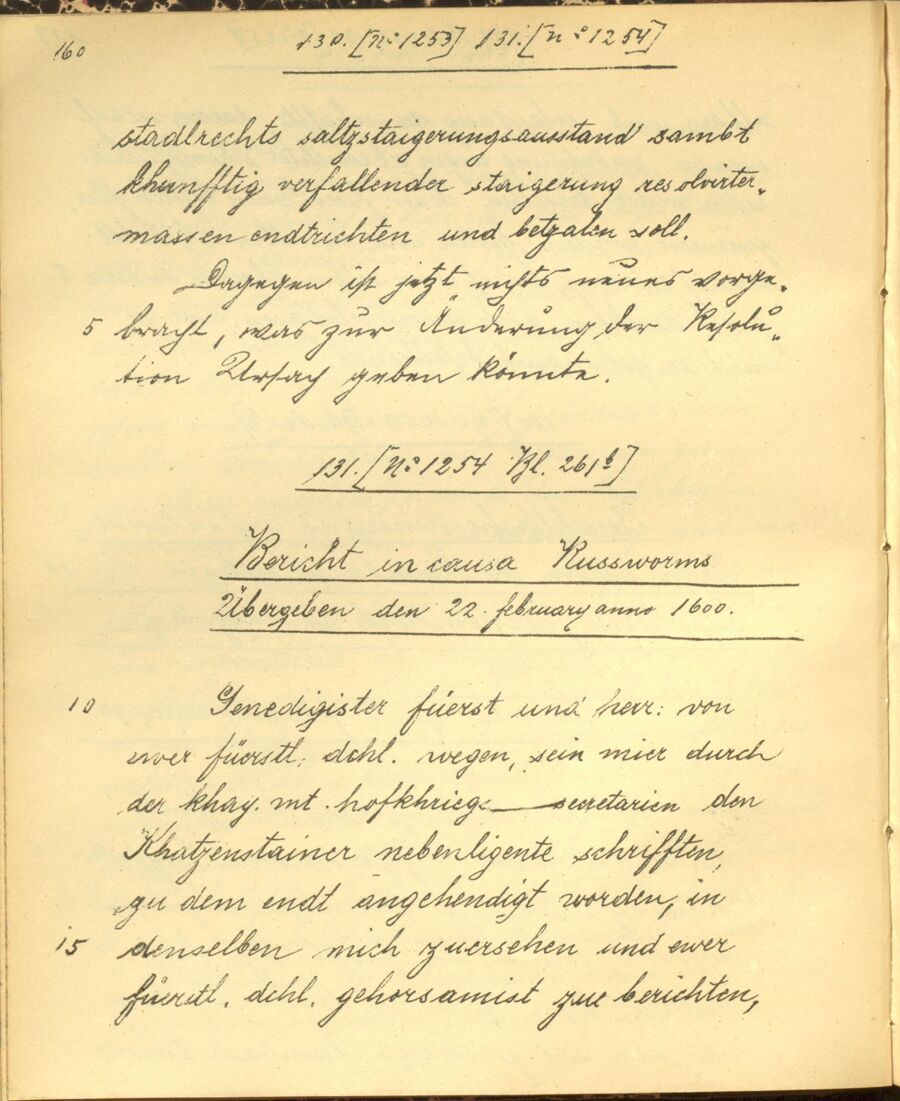 160
130. [No 1253] 131. [No 1254]
stadlrechts saltzstaigerungsausstand sambt
khunfftig verfallender staigerung resolvirter-
massen endtrichten und betzalen soll.
Dagegen ist jetzt nichts neues vorge-
5 bracht, was zur Änderung der Resolu-
tion Ursach geben könnte.
131. [No 1254 Bl. 261b]
Bericht in causa Russworms
Übergeben den 22. february anno 1600.
10 Genedigister füerst und herr: von
ewer fürstl. dchl. wegen, sein mier durch
der khay. mt. hofkhriegs secretarien den
Khatzenstainer nebenligente schrifften,
zu dem endt angehendigt worden, in
15 denselben mich zuersehen und ewer
füerstl. dchl. gehorsamist zue berichten,